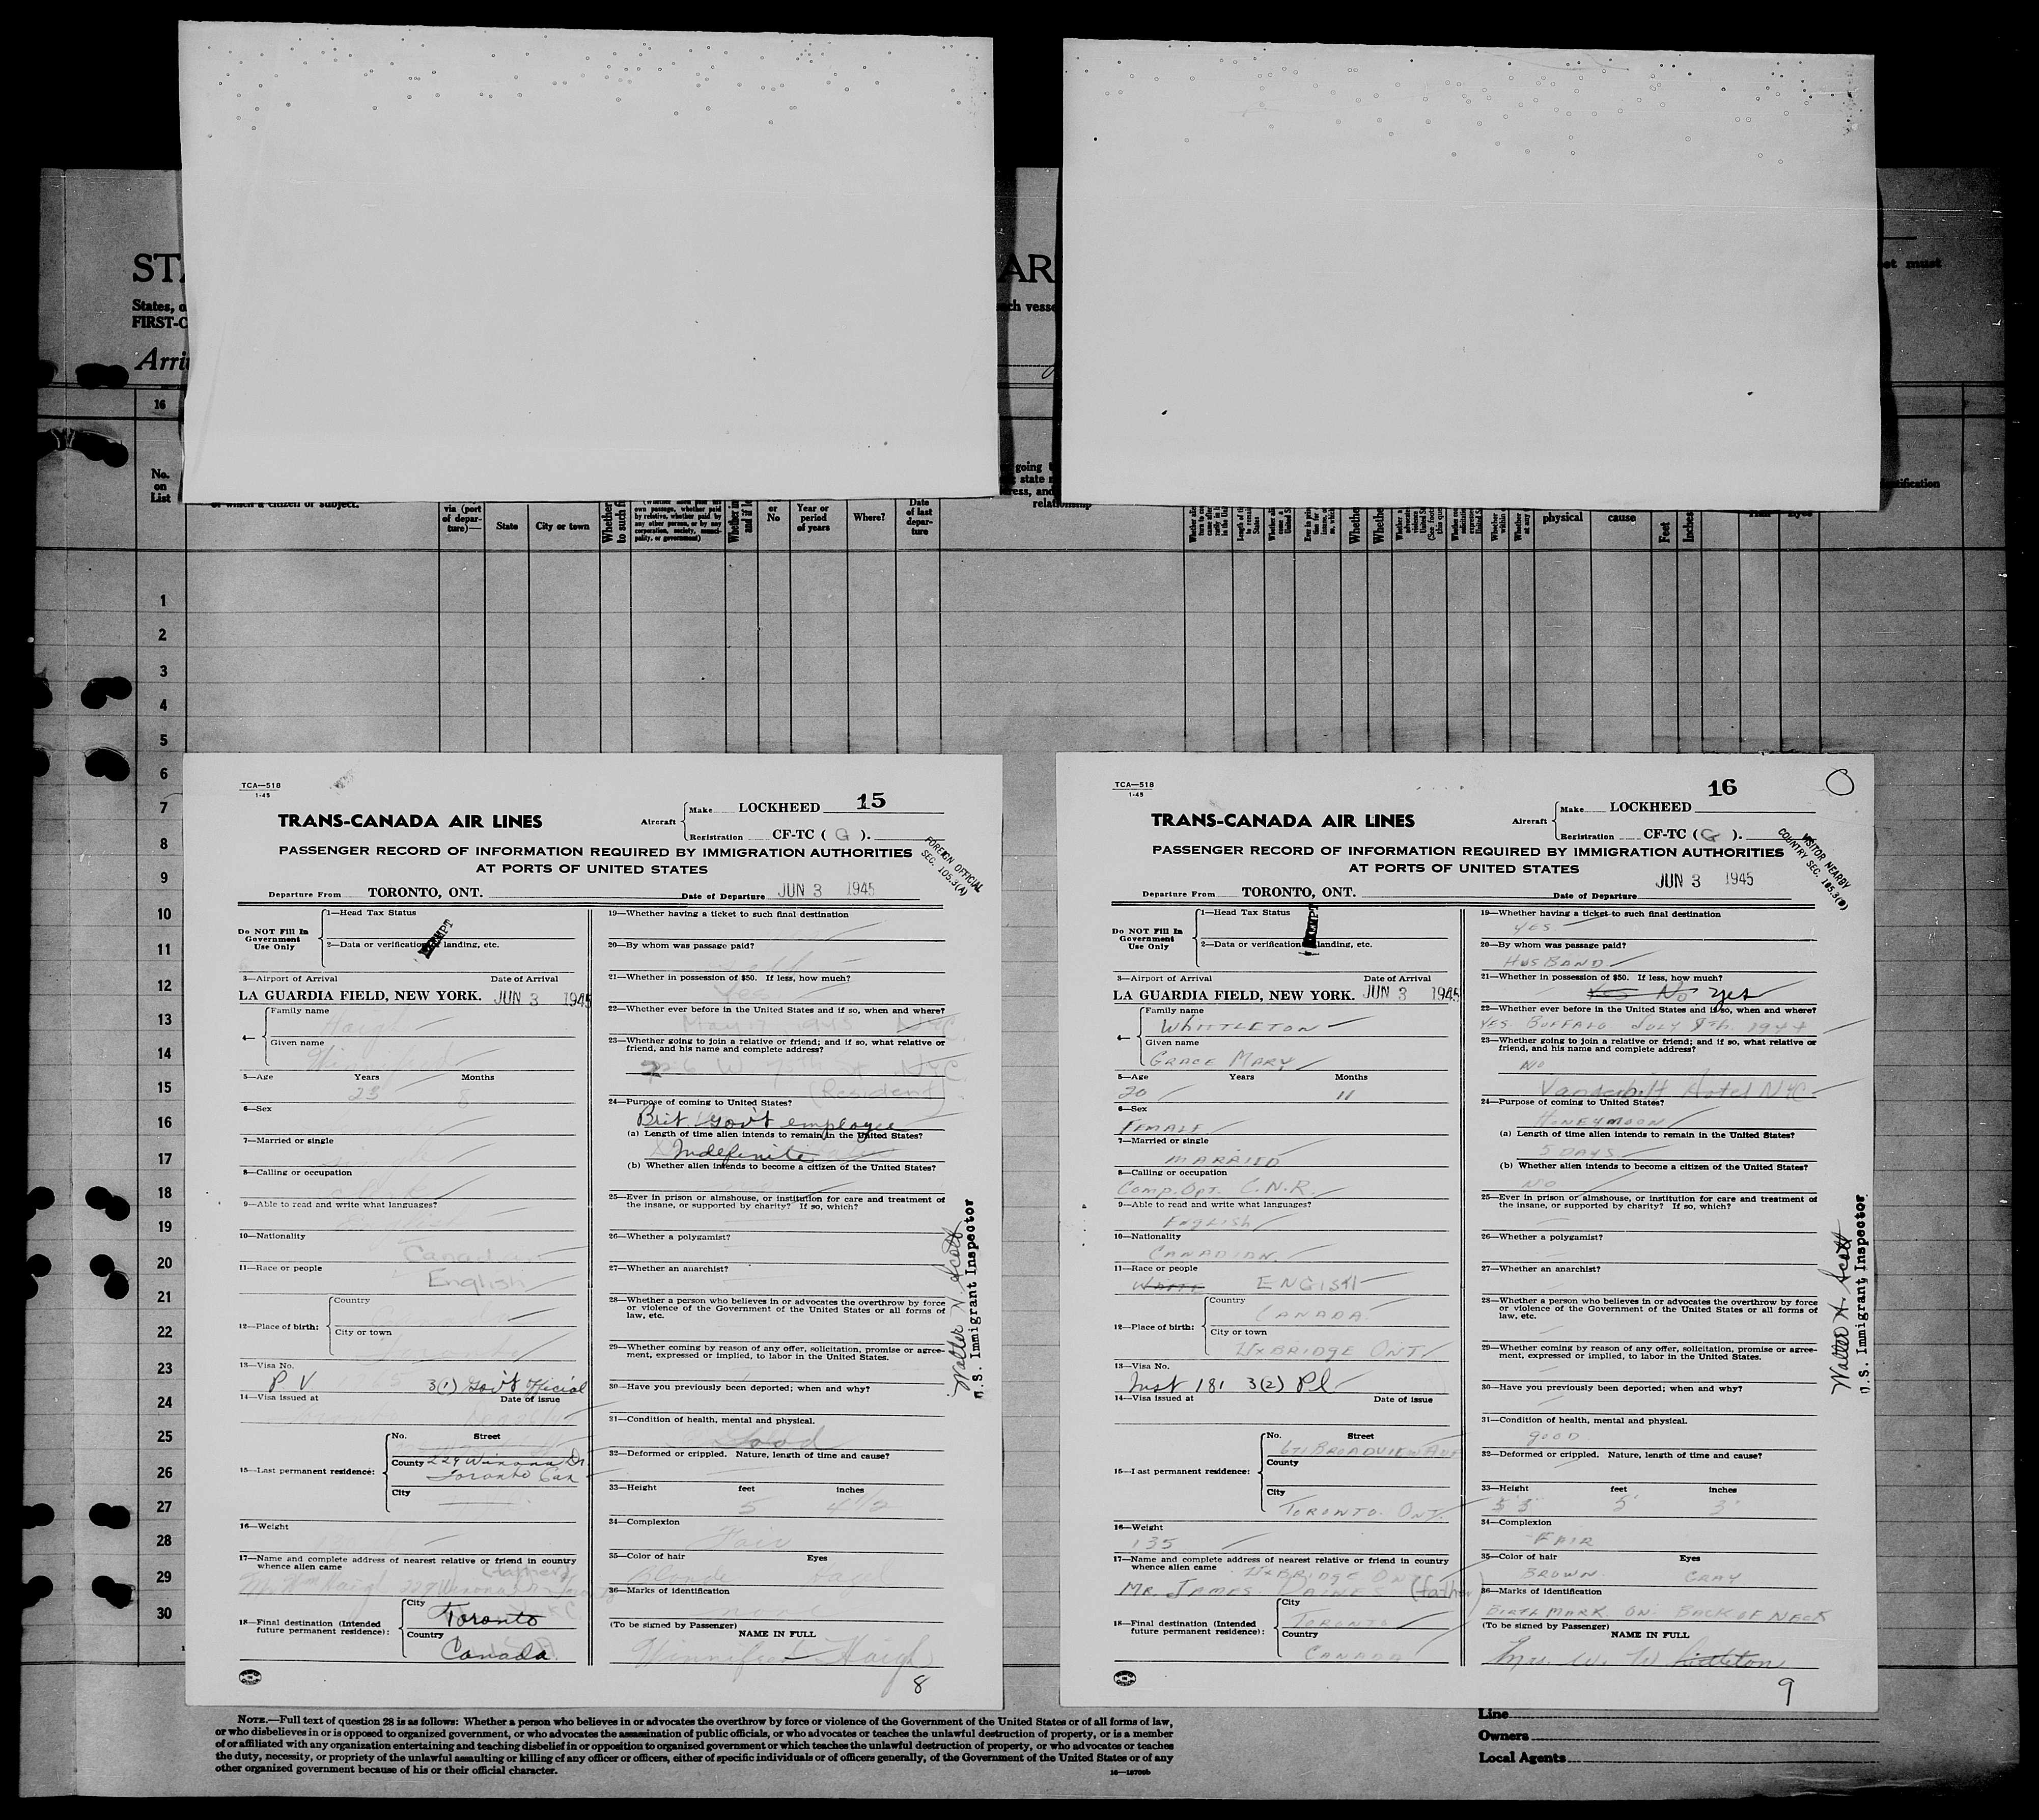 STA
AR
et must
States, o
ch vesse
FIRST-C
Arri
16
No.
on
List
of which a citizen or subject.
via (port
of depar-
ture)—
State
City or town
or
No
Year or
period
of years
Where?
Date
of last
depar-
ture
going
state
ress, and
relationship
physical
cause
Feet
Inches
1
2
3
4
5
6
7
8
9
10
11
12
13
14
15
16
17
18
19
20
21
22
23
24
25
26
27
28
29
30
TCA—518
1-45
15
Aircraft
Make LOCKHEED
TRANS-CANADA AIR LINES
Registration CF-TC ( G ).
PASSENGER RECORD OF INFORMATION REQUIRED BY IMMIGRATION AUTHORITIES
AT PORTS OF UNITED STATES
FOREIGN OFFICIAL
SEC. 105.3(A)
Departure From TORONTO, ONT.
Date of Departure JUN 3 1945
Do NOT Fill In
Government
Use Only
1—Head Tax Status
2—Data or verification landing, etc.
EXEMPT
3—Airport of Arrival Date of Arrival
LA GUARDIA FIELD, NEW YORK. JUN 3 1945
4—
Family name
Haigh
Given name
Winnifred
5—Age Years Months
23 8
6—Sex
7—Married or single
8—Calling or occupation
9—Able to read and write what languages?
10—Nationality
Canada
11—Race or people
English
12—Place of birth:
Country
City or town
Toronto
13—Visa No.
P V 3(1) Gov't Official
14—Visa issued at Date of issue
15—Last permanent residence:
No. Street
County 229 Winona Dr
Toronto Can
City
16—Weight
17—Name and complete address of nearest relative or friend in country
whence alien came
(father)
Mr. Wm Haigh 229 Winona Dr Toronto
18—Final destination (Intended
future permanent residence):
City
Toronto
Country
Canada
19—Whether having a ticket to such final destination
20—By whom was passage paid?
21—Whether in possession of $50. If less, how much?
Yes
22—Whether ever before in the United States and if so, when and where?
May 17 1945 NYC
23—Whether going to join a relative or friend; and if so, what relative or
friend, and his name and complete address?
W 7th St NYC
(Resident)
24—Purpose of coming to United States?
Brit. Gov't employee
(a) Length of time alien intends to remain in the United States?
Indefinite
(b) Whether alien intends to become a citizen of the United States?
25—Ever in prison or almshouse, or institution for care and treatment of
the insane, or supported by charity? If so, which?
26—Whether a polygamist?
27—Whether an anarchist?
28—Whether a person who believes in or advocates the overthrow by force
or violence of the Government of the United States or all forms of
law, etc.
29—Whether coming by reason of any offer, solicitation, promise or agree-
ment, expressed or implied, to labor in the United States.
30—Have you previously been deported; when and why?
31—Condition of health, mental and physical.
Good
32—Deformed or crippled. Nature, length of time and cause?
33—Height feet inches
5 4 1/2
34—Complexion
Fair
35—Color of hair Eyes
Blonde
36—Marks of identification
none
(To be signed by Passenger)
NAME IN FULL
Winnifred Haigh
8
Walter H. Scott
U.S. Immigrant Inspector
TCA—518
1-45
16
Aircraft
Make LOCKHEED
TRANS-CANADA AIR LINES
Registration CF-TC ( G ).
PASSENGER RECORD OF INFORMATION REQUIRED BY IMMIGRATION AUTHORITIES
AT PORTS OF UNITED STATES
VISITOR NEARBY
COUNTRY SEC. 105.3(B)
Departure From TORONTO, ONT.
Date of Departure JUN 3 1945
Do NOT Fill In
Government
Use Only
1—Head Tax Status
2—Data or verification landing, etc.
EXEMPT
3—Airport of Arrival Date of Arrival
LA GUARDIA FIELD, NEW YORK. JUN 3 1945
4—
Family name
WHITTLETON
Given name
GRACE MARY
5—Age Years Months
20 11
6—Sex
FEMALE
7—Married or single
MARRIED
8—Calling or occupation
COMP. OPT. C.N.R.
9—Able to read and write what languages?
ENGLISH
10—Nationality
CANADIAN.
11—Race or people
WHITE ENGISH
12—Place of birth:
Country
CANADA
City or town
UXBRIDGE ONT
13—Visa No.
Inst 181 3(2) Pl
14—Visa issued at Date of issue
15—Last permanent residence:
No. Street
671 BROADVIEW AVE
County
City
TORONTO. ONT.
16—Weight
135
17—Name and complete address of nearest relative or friend in country
whence alien came
UXBRIDGE ONT
MR. JAMES. PAINE (father)
18—Final destination (Intended
future permanent residence):
City
TORONTO
Country
CANADA
19—Whether having a ticket to such final destination
YES
20—By whom was passage paid?
HUSBAND
21—Whether in possession of $50. If less, how much?
Yes No yes
22—Whether ever before in the United States and if so, when and where?
YES. BUFFALO JULY 8th. 1944
23—Whether going to join a relative or friend; and if so, what relative or
friend, and his name and complete address?
NO
Vanderbilt Hotel NYC
24—Purpose of coming to United States?
HONEYMOON
(a) Length of time alien intends to remain in the United States?
5 DAYS
(b) Whether alien intends to become a citizen of the United States?
NO
25—Ever in prison or almshouse, or institution for care and treatment of
the insane, or supported by charity? If so, which?
26—Whether a polygamist?
27—Whether an anarchist?
28—Whether a person who believes in or advocates the overthrow by force
or violence of the Government of the United States or all forms of
law, etc.
29—Whether coming by reason of any offer, solicitation, promise or agree-
ment, expressed or implied, to labor in the United States.
30—Have you previously been deported; when and why?
31—Condition of health, mental and physical.
GOOD
32—Deformed or crippled. Nature, length of time and cause?
33—Height feet inches
5'3" 5' 3"
34—Complexion
FAIR
35—Color of hair Eyes
BROWN. GRAY
36—Marks of identification
BIRTH MARK ON BACK OF NECK
(To be signed by Passenger)
NAME IN FULL
Mrs. W. Whittleton
9
Walter H. Scott
U.S. Immigrant Inspector
NOTE.—Full text of question 28 is as follows: Whether a person who believes in or advocates the overthrow by force or violence of the Government of the United States or of all forms of law,
or who disbelieves in or is opposed to organized government, or who advocates the assassination of public officials, or who advocates or teaches the unlawful destruction of property, or is a member
of or affiliated with any organization entertaining and teaching disbelief in or opposition to organized government or which teaches the unlawful destruction of property, or who advocates or teaches
the duty, necessity, or propriety of the unlawful assaulting or killing of any officer or officers, either of specific individuals or of officers generally, of the Government of the United States or of any
other organized government because of his or their official character.
Line
Owners
Local Agents